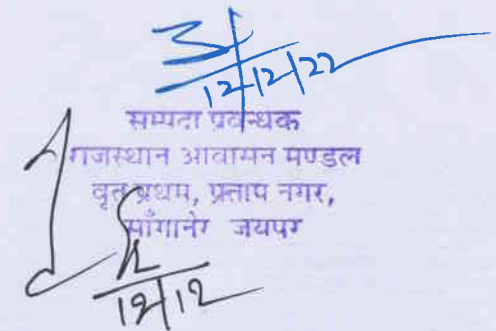 12/12/22
सम्पदा प्रबन्धक
राजस्थान आवासन मण्डल
वृत प्रथम, प्रताप नगर,
साँगानेर जयपुर
12/12